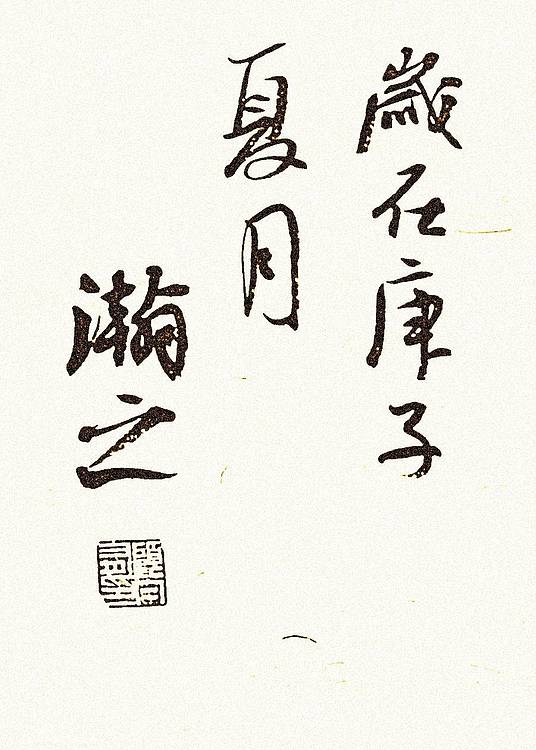 歲在庚子
夏月
瀚之